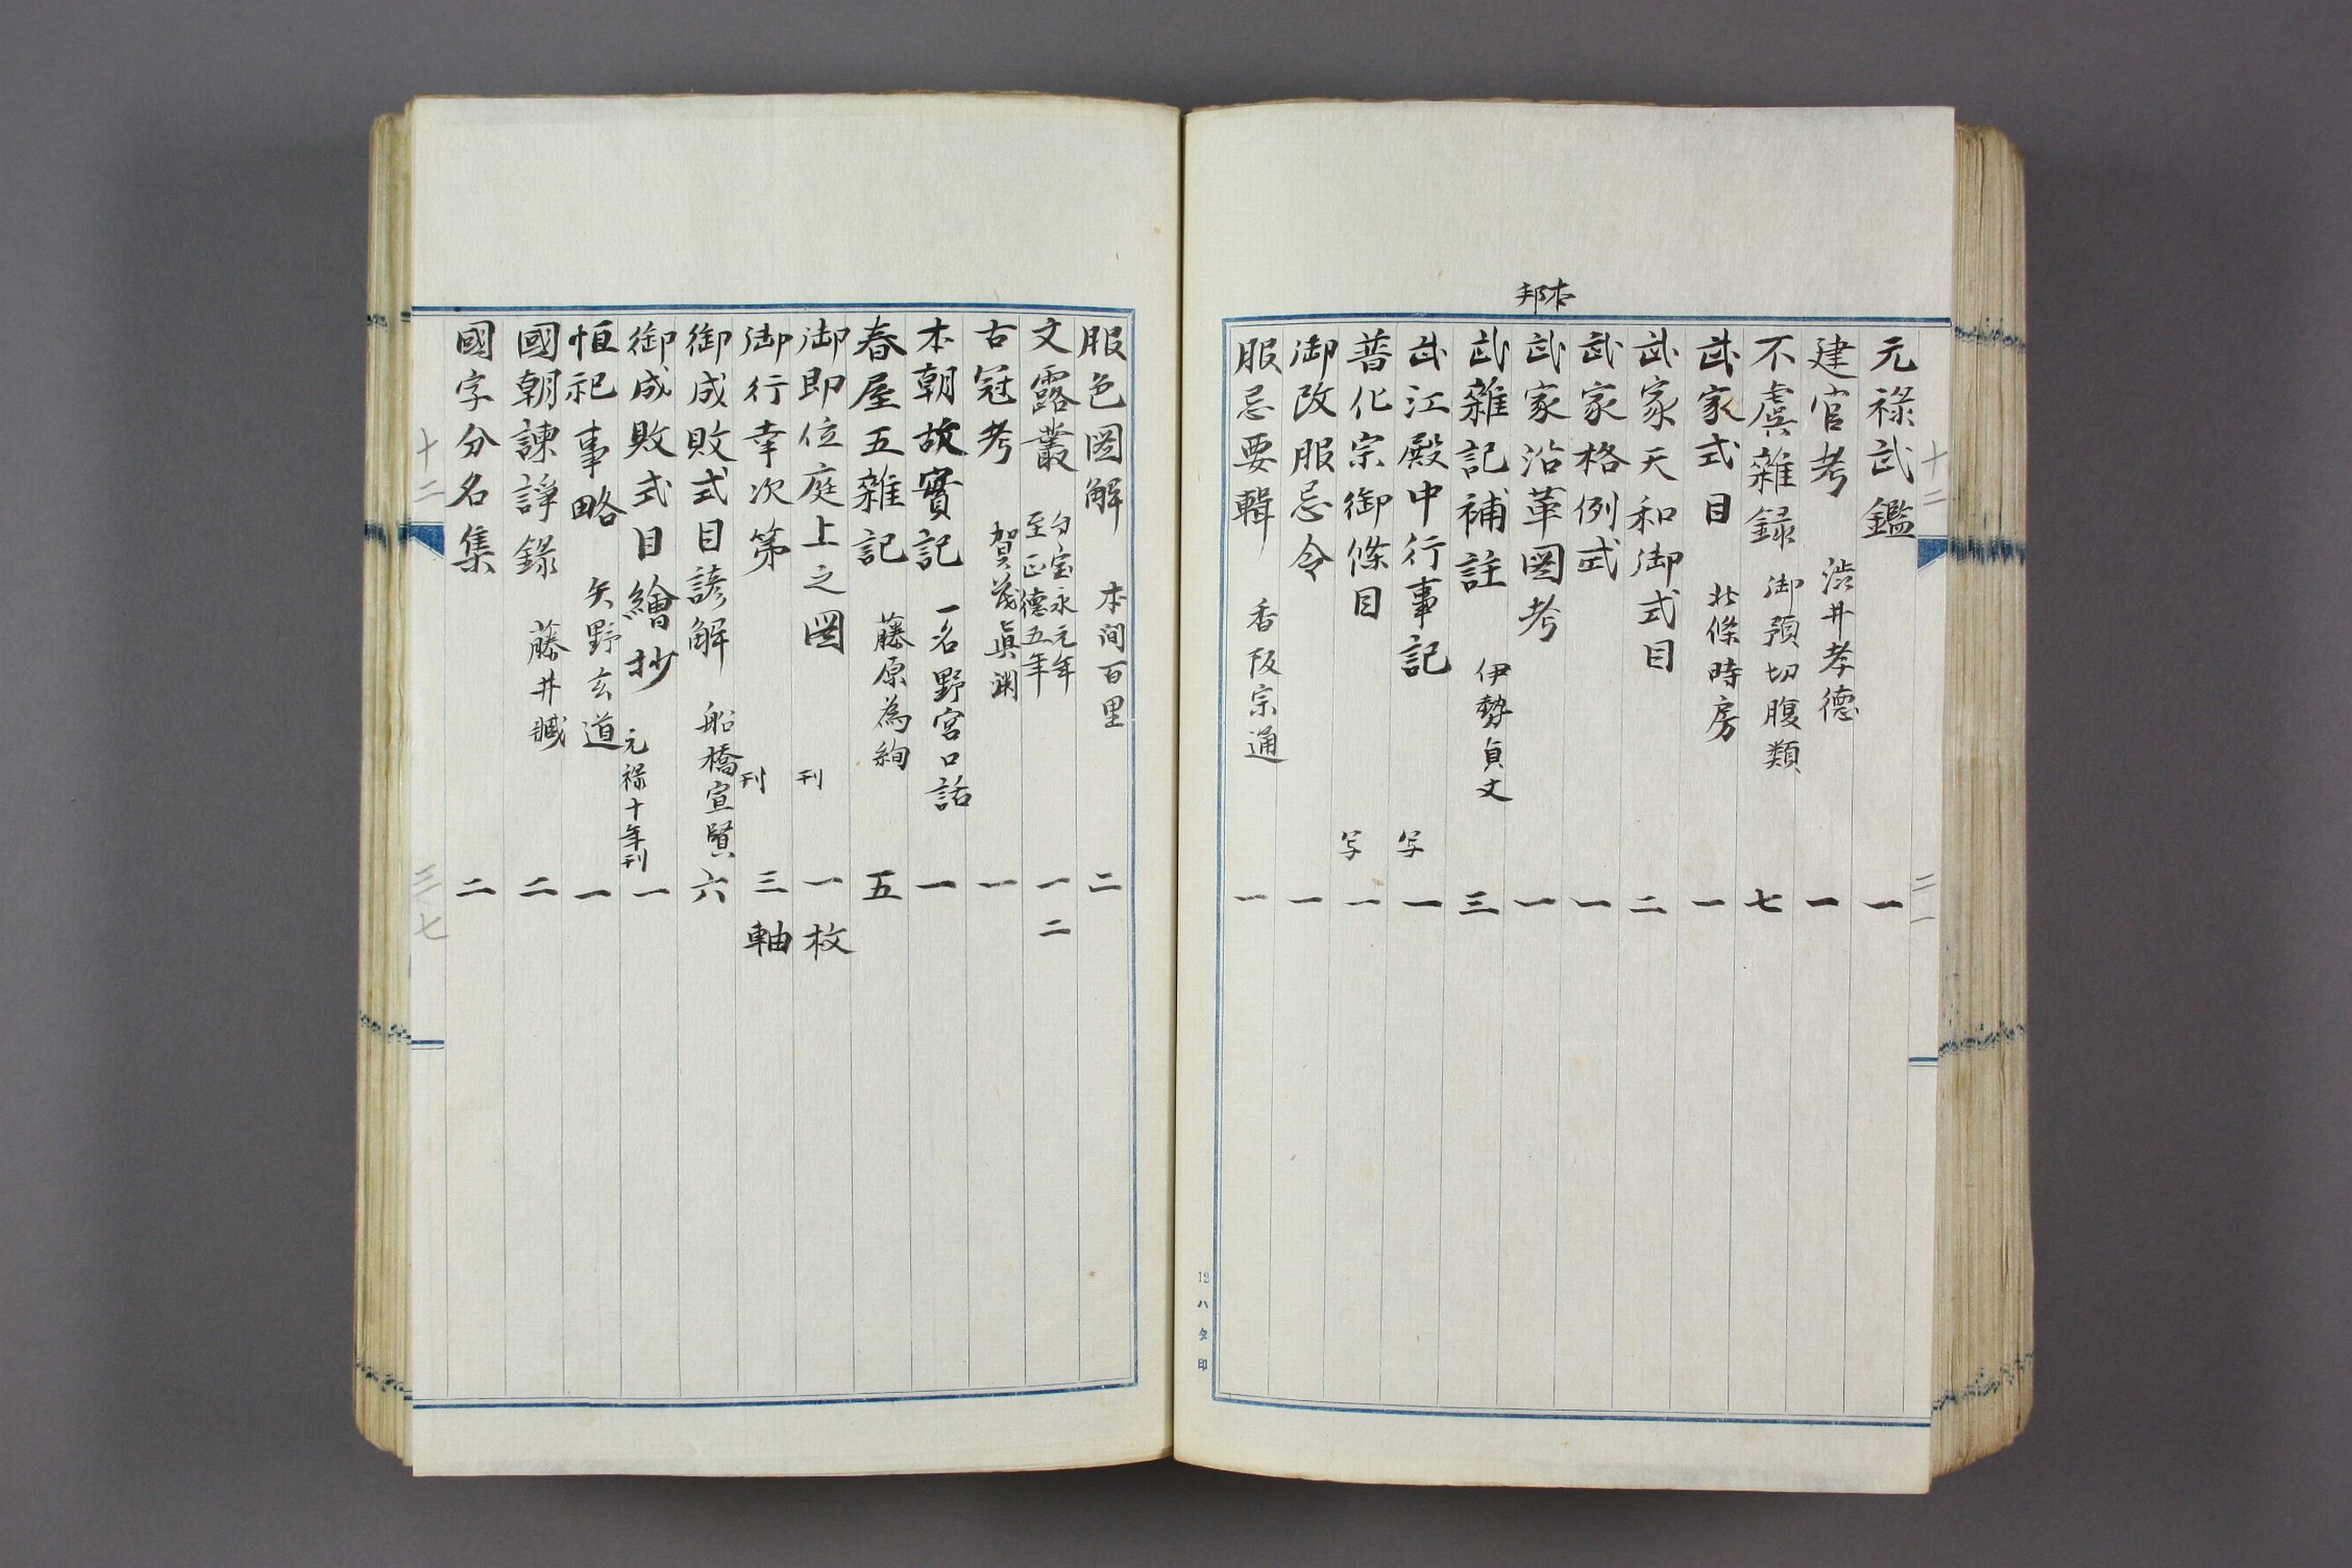 元祿武鑑 一
建官考 渋井孝德 一
不虞雜録 御預切腹類 七
武家式目 北條時房 一
武家天和御式目 二
武家格例式 一
本邦
武家沿革圖考 一
武雜記補註 伊勢貞文 三
武江殿中行事記 写 一
普化宗御條目 写 一
御改服忌令 一
服忌要輯 香阪宗通 一
12ハタ印
十二
二一
服色圖解 本间百里 二
文露叢 自宝永元年 至正德五年 一二
古冠考 賀茂眞渕 一
本朝故實記 一名野宮口話 一
春屋五雜記 藤原為絢 五
御即位庭上之圖 刊 一枚
御行幸次第 刊 三軸
御成敗式目諺解 船橋宣賢 六
御成敗式目繪抄 元禄十年刊 一
恒祀事略 矢野玄道 一
國朝諫諍錄 藤井臧 二
國字分名集 二
十二
三七